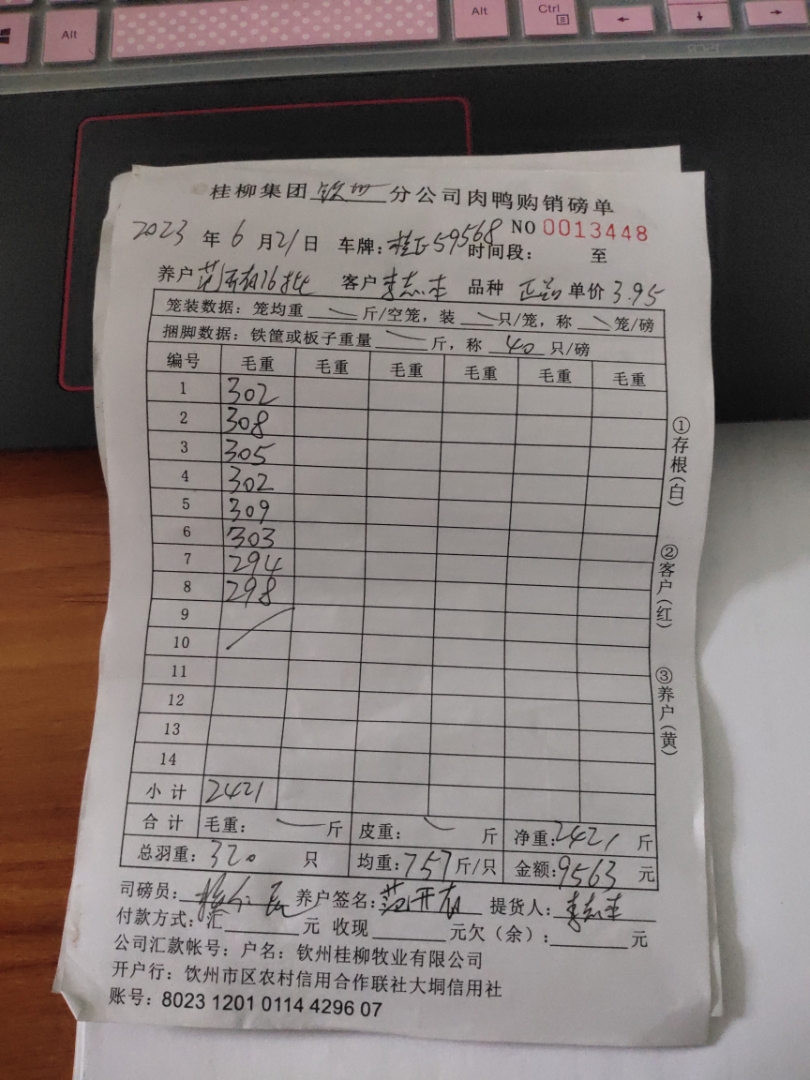 Alt Alt Ctrl
桂柳集团 钦州 分公司肉鸭购销磅单
NO 0013448
2023 年 6 月 21 日 车牌: 桂E59568 时间段: 至
养户 范开有16批 客户 李志年 品种 正品 单价 3.95
笼装数据: 笼均重 斤/空笼, 装 只/笼, 称 笼/磅
捆脚数据: 铁筐或板子重量 斤, 称 40 只/磅
编号 毛重 毛重 毛重 毛重 毛重 毛重
1 302
2 308
3 305
4 302
5 309
6 303
7 294
8 298
9
10
11
12
13
14
小计 2421
合计 毛重: 斤 皮重: 斤 净重: 2421 斤
总羽重: 320 只 均重: 757 斤/只 金额: 9563 元
司磅员: 养户签名: 范开有 提货人:
付款方式: 汇 元 收现 元欠(余): 元
公司汇款帐号: 户名: 钦州桂柳牧业有限公司
开户行: 钦州市区农村信用合作联社大垌信用社
账号: 8023 1201 0114 4296 07
①存根(白)
②客户(红)
③养户(黄)